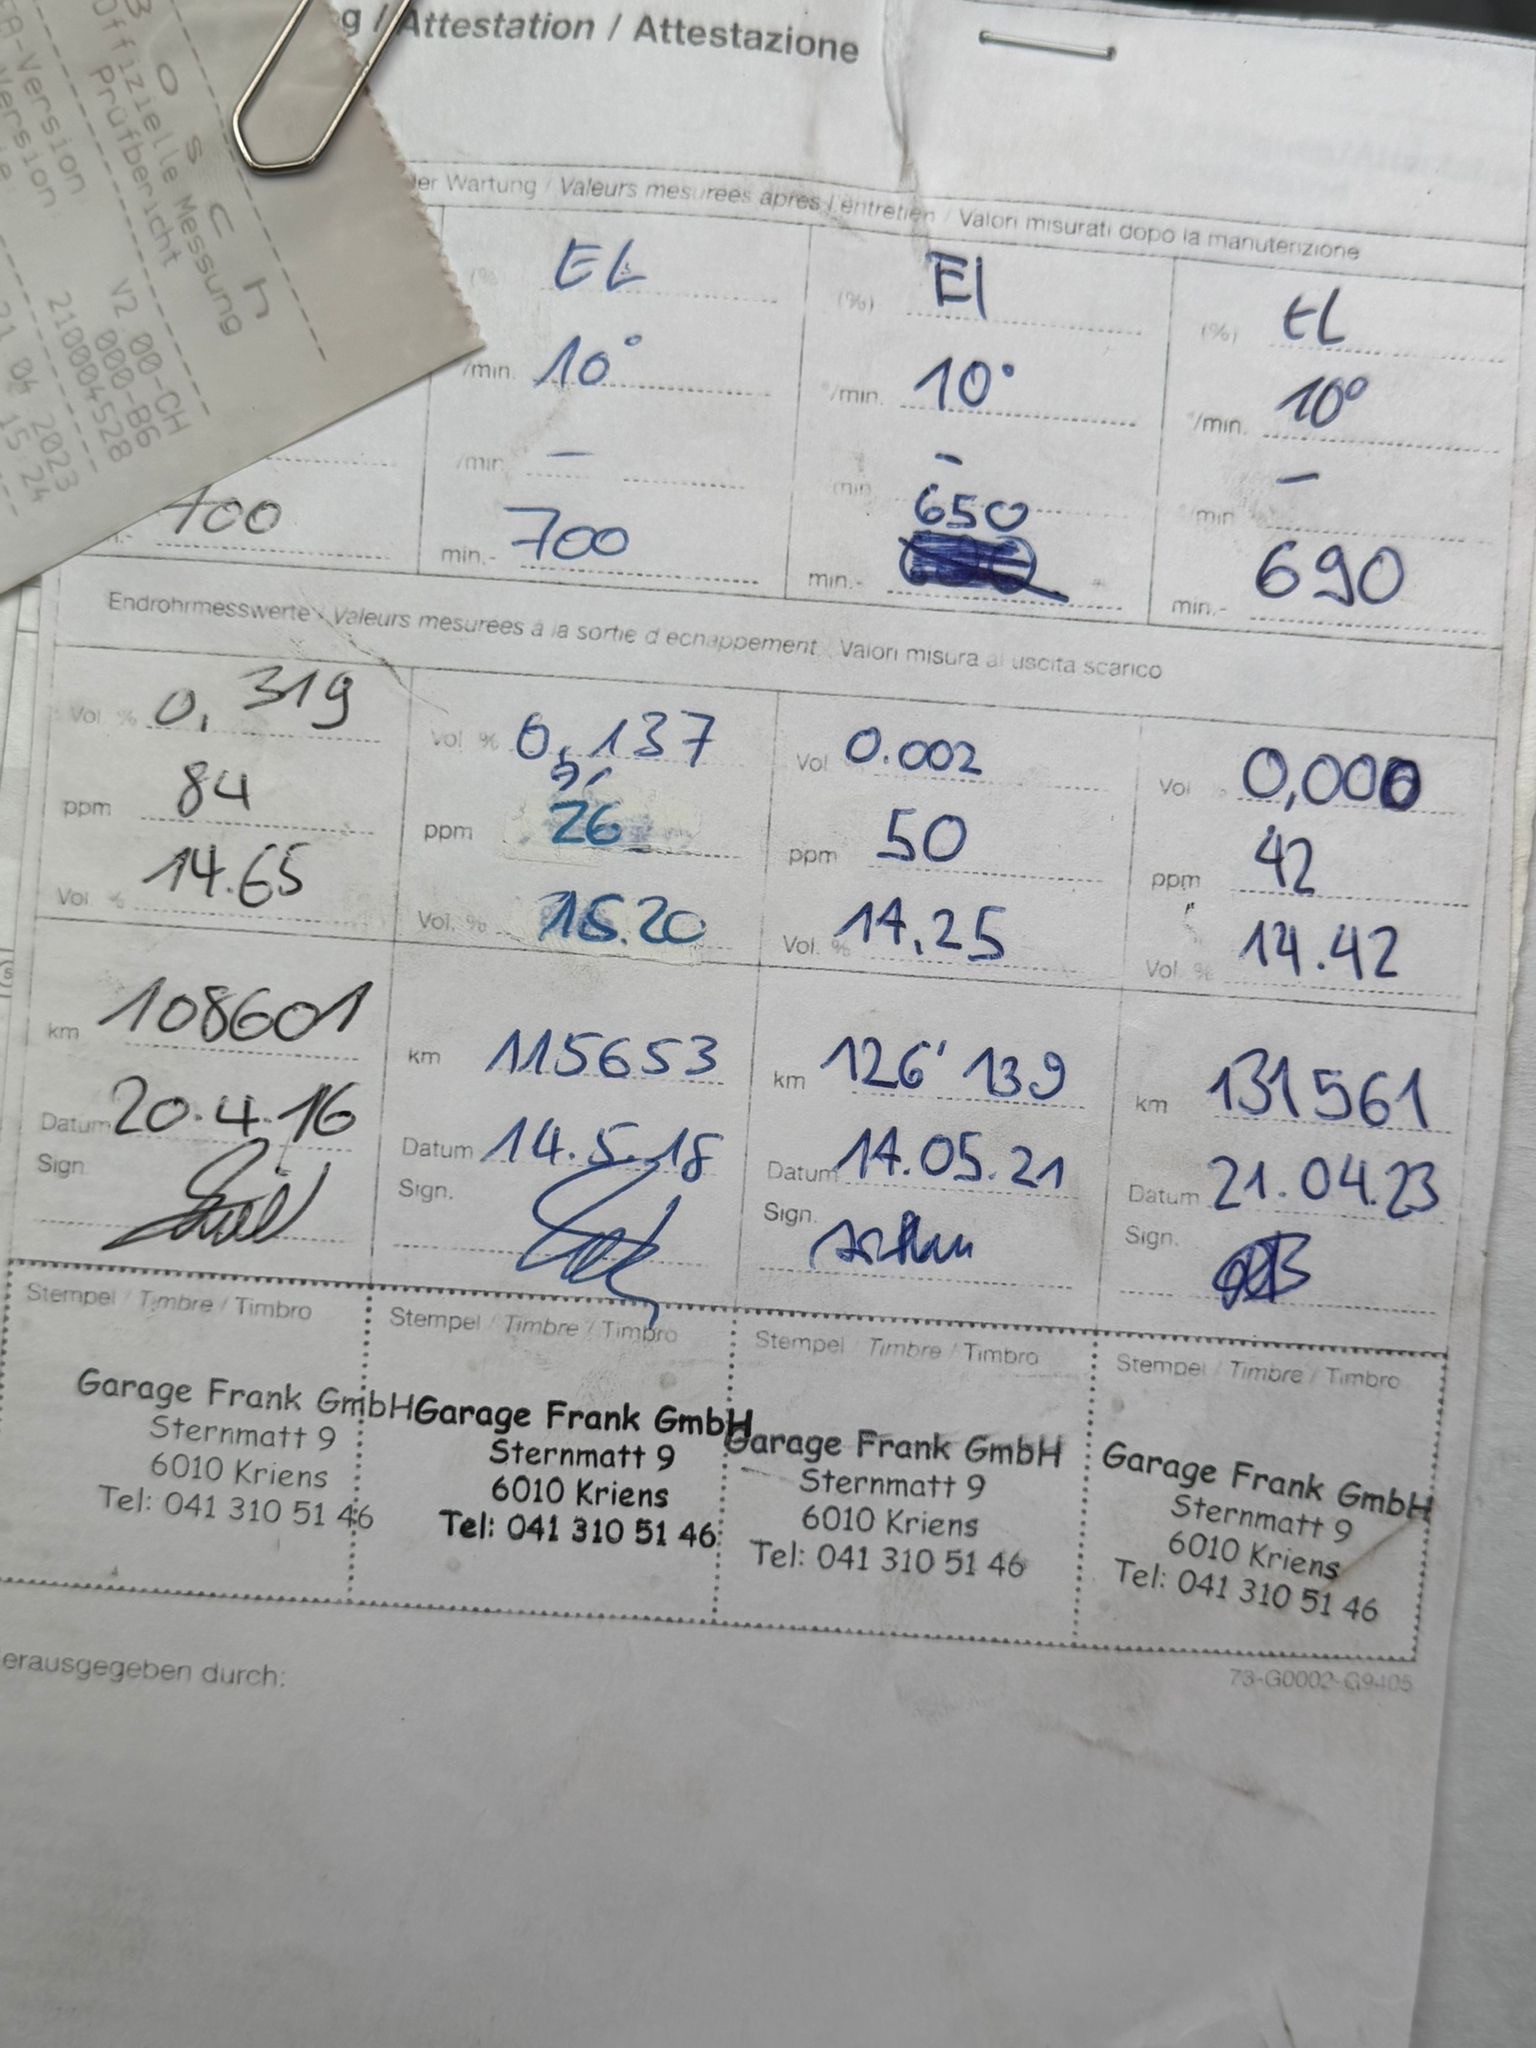 g / Attestation / Attestazione
Offizielle Messung
Prüfbericht
Version V2.00-CH
Version 000-B6
2100004528
21.04.2023
15:24
der Wartung / Valeurs mesurées après l'entretien / Valori misurati dopo la manutenzione
(%) EL (%) El (%) EL
/min. 10° °/min. 10° °/min. 10°
/min. - min. - /min. -
700 min.- 700 650 min.- min.- 690
Endrohrmesswerte / Valeurs mesurées à la sortie d'échappement / Valori misura al uscita scarico
Vol. % 0,319 Vol. % 0,137 Vol. 0.002 Vol. % 0,000
ppm 84 ppm 26 ppm 50 ppm 42
Vol. % 14.65 Vol. % 15.20 Vol. % 14,25 Vol. % 14.42
km 108601 km 115653 km 126'139 km 131561
Datum 20.4.16 Datum 14.5.18 Datum 14.05.21 Datum 21.04.23
Sign. Sign. Sign. Sign.
Stempel / Timbre / Timbro Stempel / Timbre / Timbro Stempel / Timbre / Timbro Stempel / Timbre / Timbro
Garage Frank GmbH Garage Frank GmbH Garage Frank GmbH Garage Frank GmbH
Sternmatt 9 Sternmatt 9 Sternmatt 9 Sternmatt 9
6010 Kriens 6010 Kriens 6010 Kriens 6010 Kriens
Tel: 041 310 51 46 Tel: 041 310 51 46 Tel: 041 310 51 46 Tel: 041 310 51 46
erausgegeben durch:
73-G0002-G9405